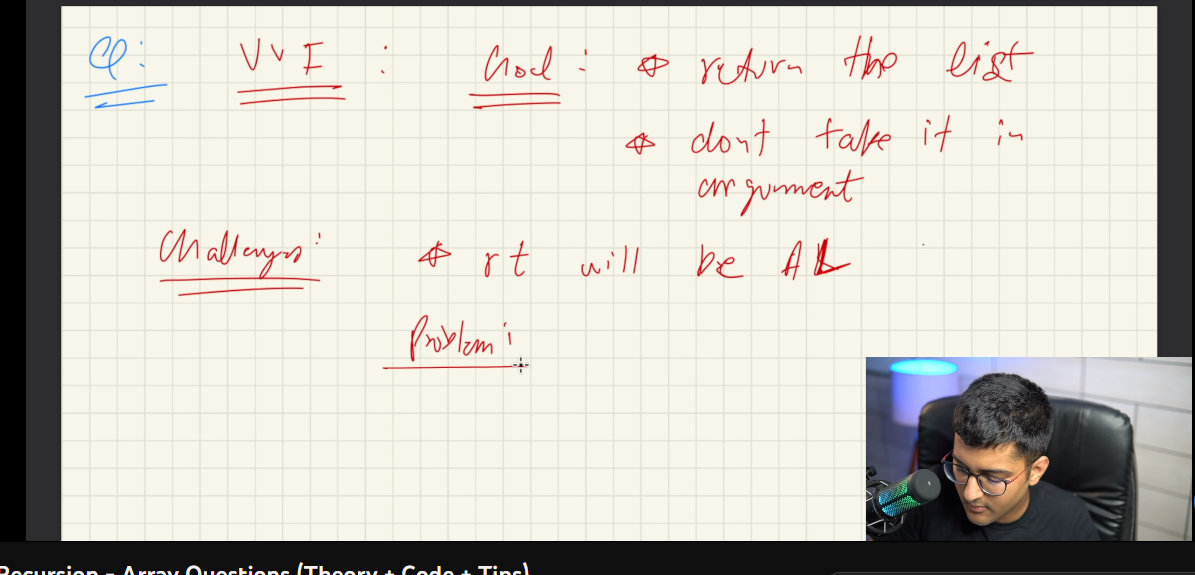 Q: VVI : Goal : * return the list
* dont take it in
argument
Challenges: * rt will be AL
Problem:
Recursion - Array Questions (Theory + Code + Tips)